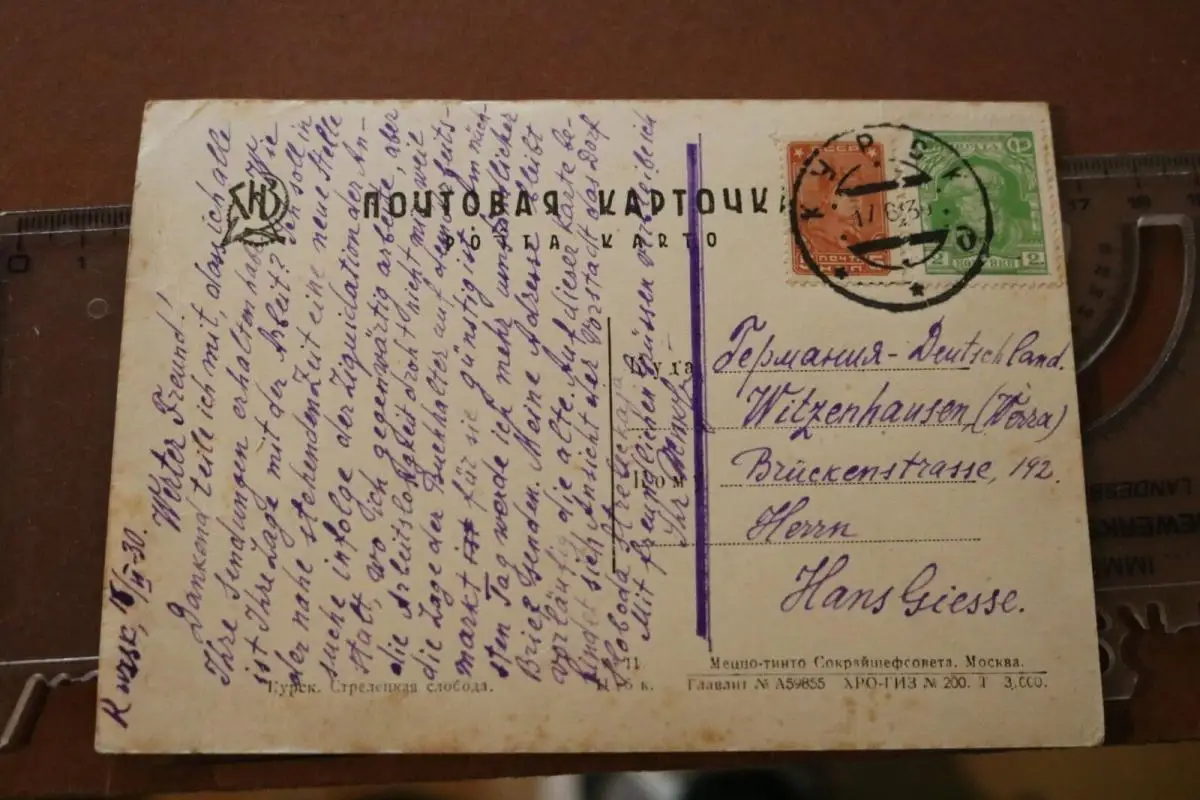 ПОЧТОВАЯ КАРТОЧКА
POŜTA KARTO
Kursk, 16/VI-30.
Werter Freund!
Dankend teile ich mit, dass ich alle
Ihre Sendungen erhalten habe. Wie
ist Ihre Lage mit der Arbeit? Ich soll in
der nahe stehenden Zeit eine neue Stelle
suche infolge der Liquidation der An-
stalt, wo ich gegenwärtig arbeite, aber
die Arbeitslosigkeit droht nicht mir, weil
die Lage der Buchhalter auf dem Arbeits-
markt für sie günstig ist. Im näch-
sten Tag werde ich mehr umständlicher
Brief senden. Meine Adresse bleibt
vorläufig die alte. Auf dieser Karte be-
findet sich Ansicht der Vorstadt das Dorf
Sloboda Streletzkaja
Mit freundlichen Grüssen verbleibe ich
Ihr
СССР
ПОЧТА
КУРСК
17 6 30
ПОЧТА
2 КОПЕЙКИ 2
Куда
Германия - Deutschland.
Witzenhausen (Werra)
Brückenstrasse, 192.
Кому
Herrn
Hans Giesse.
Курск. Стрелецкая слобода.
к.
Меццо-тинто Сокрайшефсовета. Москва.
Главлит № А59855 ХРО-ГИЗ № 200. Т 3.000.
0 1
17 18
LANDES
GEWERK
IMM